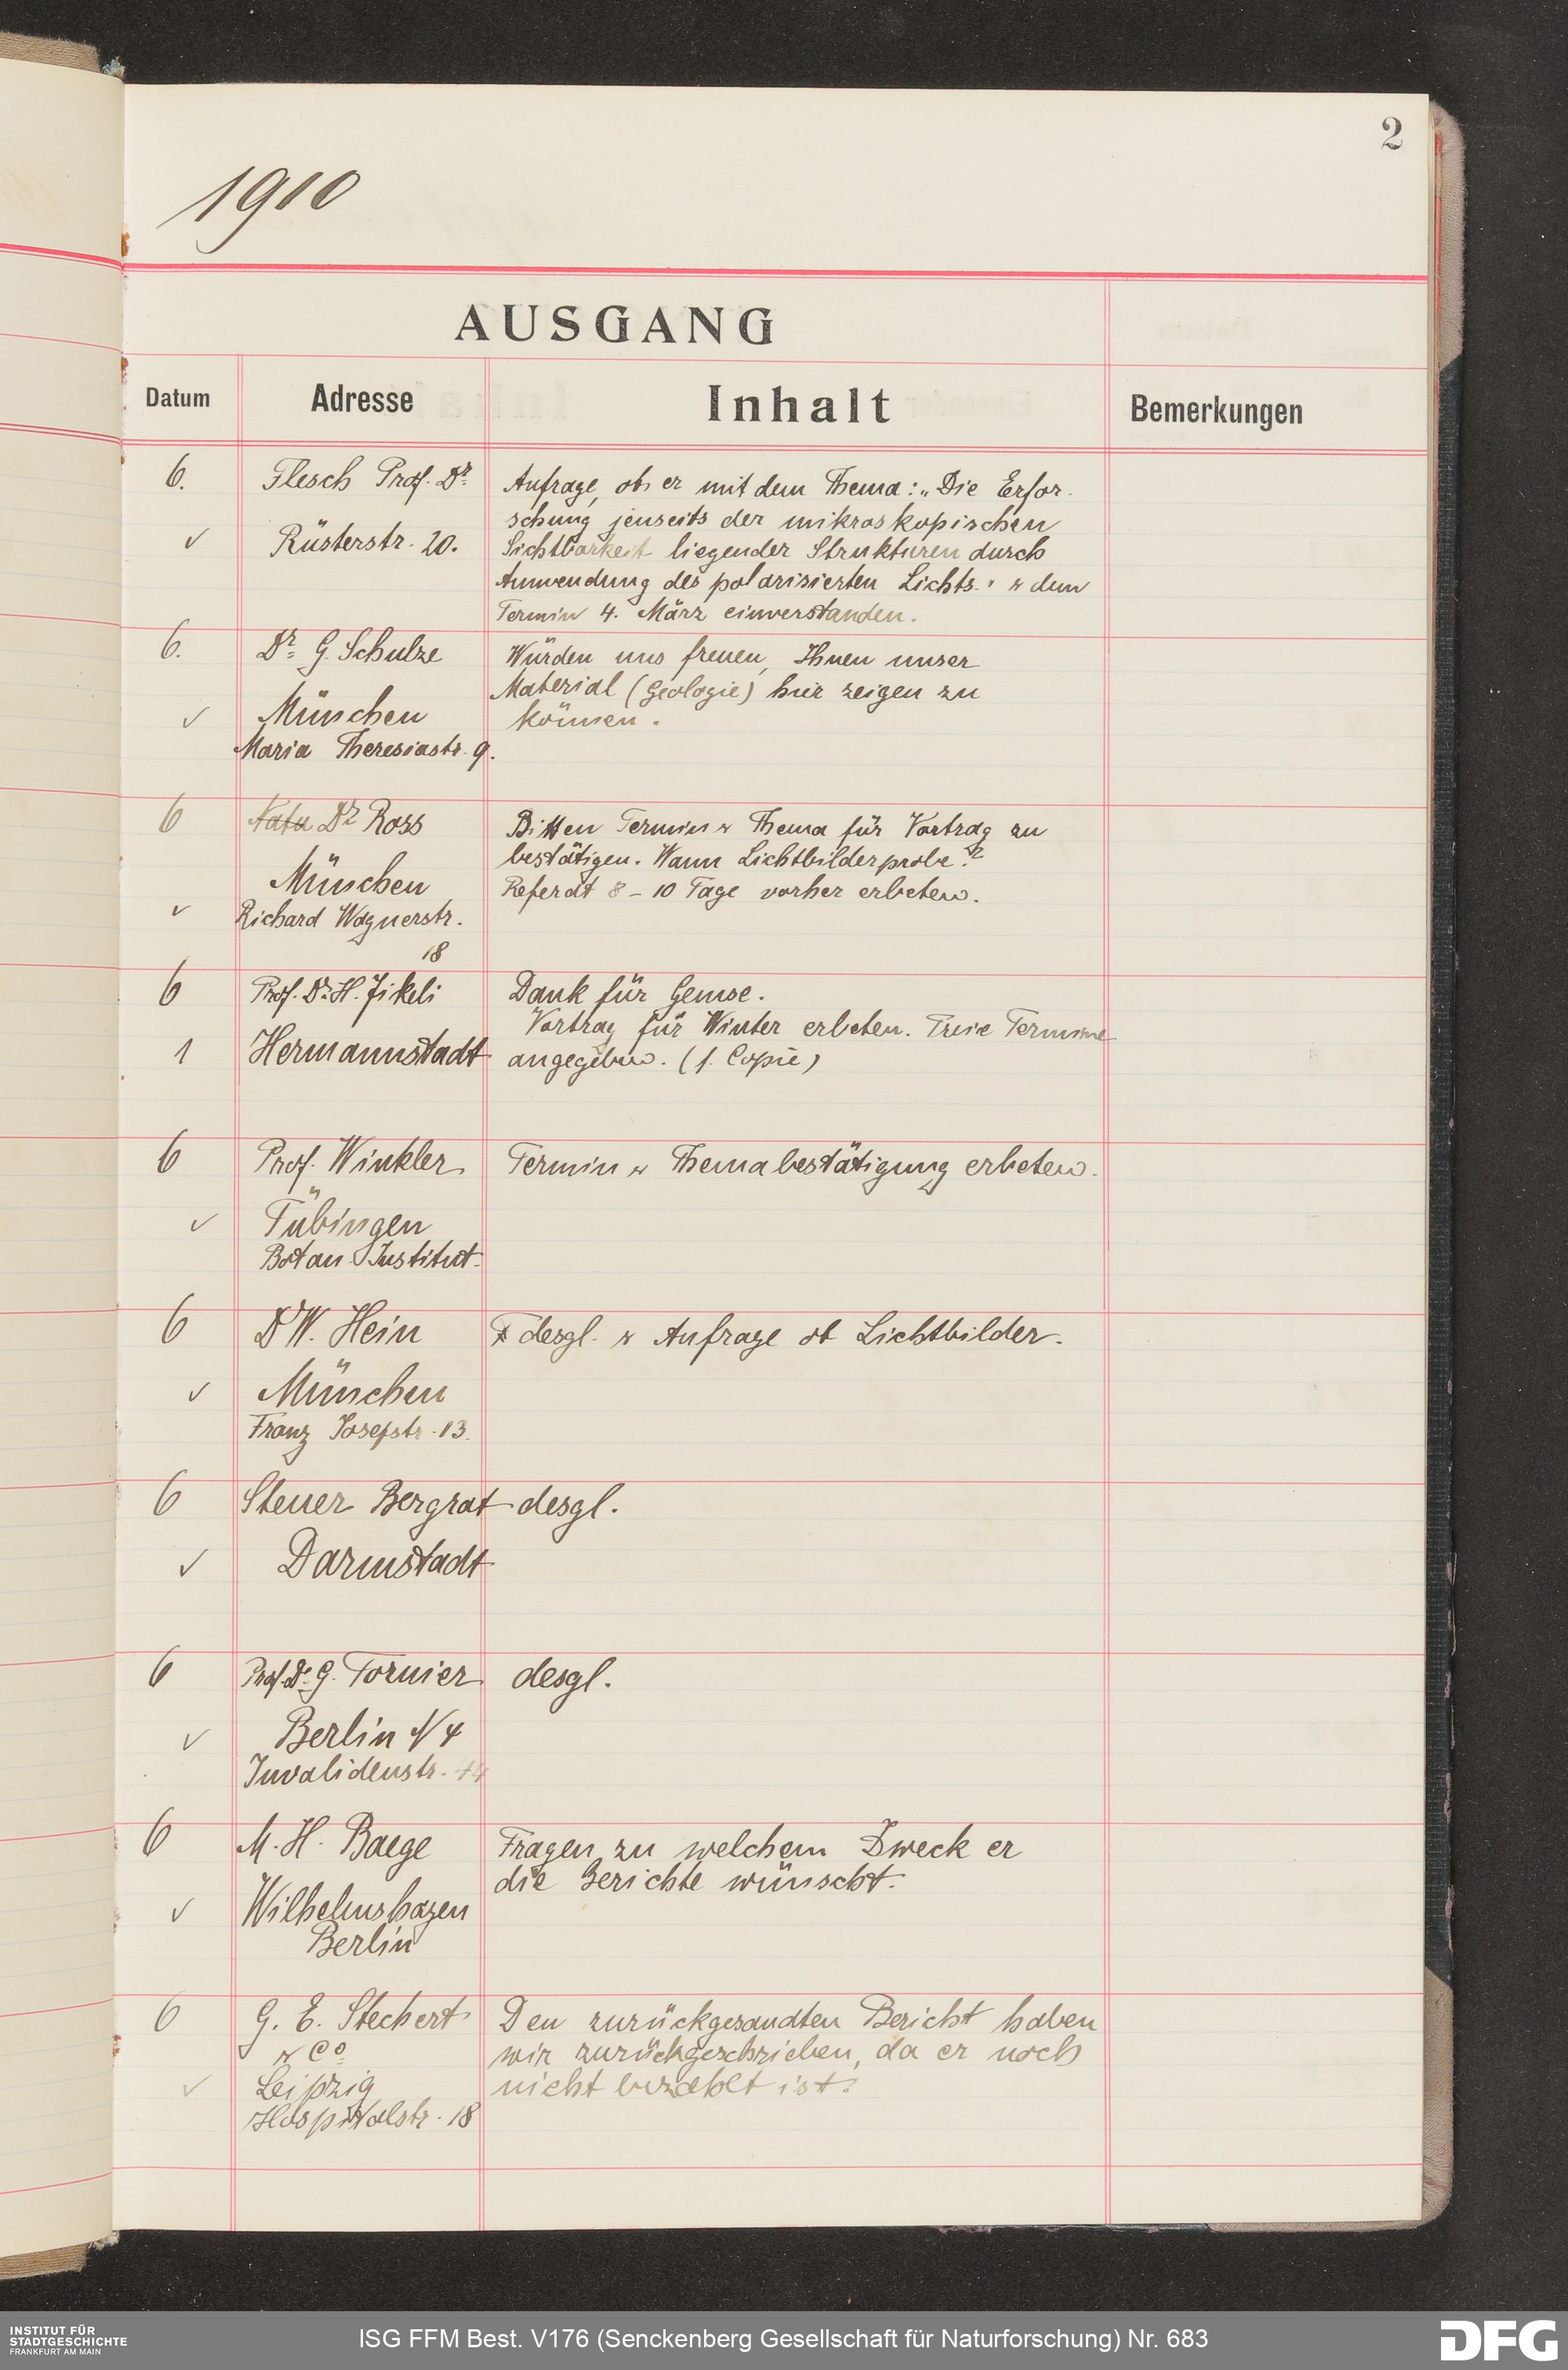 2
1910
AUSGANG
Datum
Adresse
Inhalt
Bemerkungen
6.
Flesch Prof. Dr.
Anfrage, ob er mit dem Thema: „Die Erfor-
schung jenseits der mikroskopischen
✓
Rüsterstr. 20.
Sichtbarkeit liegender Strukturen durch
Anwendung des polarisierten Lichts." u dem
Termin 4. März einverstanden.
6.
Dr. G. Schulze
Würden uns freuen, Ihnen unser
Material (Geologie) hier zeigen zu
✓
München
können.
Maria Theresiastr. 9.
6
Dr Ross
Bitten Termin u Thema für Vortrag zu
bestätigen. Wann Lichtbilderprobe?
München
Referat 8 – 10 Tage vorher erbeten.
✓
Richard Wagnerstr.
18
6
Prof. Dr. H. Jikeli
Dank für Gemse.
Vortrag für Winter erbeten. Freie Termine
1
Hermannstadt
angegeben. (1. Copie)
6
Prof. Winkler
Termin u Themabestätigung erbeten.
✓
Tübingen
Botan. Institut.
6
Dr W. Hein
desgl. u Anfrage ob Lichtbilder.
✓
München
Franz Josefstr. 13.
6
Steuer Bergrat
desgl.
✓
Darmstadt
6
Prof. Dr. G. Tornier
desgl.
✓
Berlin N 4
Invalidenstr.
6
M. H. Baege
Fragen zu welchem Zweck er
die Berichte wünscht.
✓
Wilhelmshagen
Berlin
6
G. E. Stechert
Den zurückgesandten Bericht haben
u Co.
wir zurückgeschrieben, da er noch
✓
Leipzig
nicht bezahlt ist.
Hospitalstr. 18
INSTITUT FÜR
STADTGESCHICHTE
FRANKFURT AM MAIN
ISG FFM Best. V176 (Senckenberg Gesellschaft für Naturforschung) Nr. 683
DFG